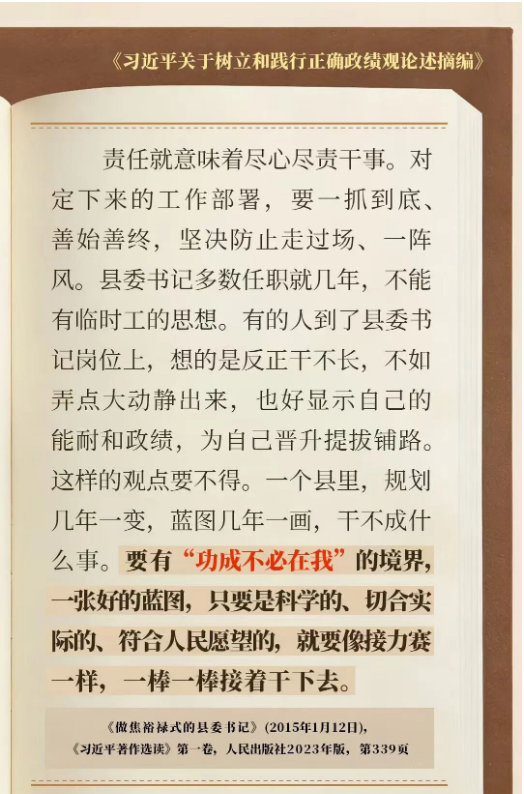 《习近平关于树立和践行正确政绩观论述摘编》
责任就意味着尽心尽责干事。对
定下来的工作部署，要一抓到底、
善始善终，坚决防止走过场、一阵
风。县委书记多数任职就几年，不能
有临时工的思想。有的人到了县委书
记岗位上，想的是反正干不长，不如
弄点大动静出来，也好显示自己的
能耐和政绩，为自己晋升提拔铺路。
这样的观点要不得。一个县里，规划
几年一变，蓝图几年一画，干不成什
么事。要有“功成不必在我”的境界，
一张好的蓝图，只要是科学的、切合实
际的、符合人民愿望的，就要像接力赛
一样，一棒一棒接着干下去。
《做焦裕禄式的县委书记》(2015年1月12日),
《习近平著作选读》第一卷，人民出版社2023年版，第339页